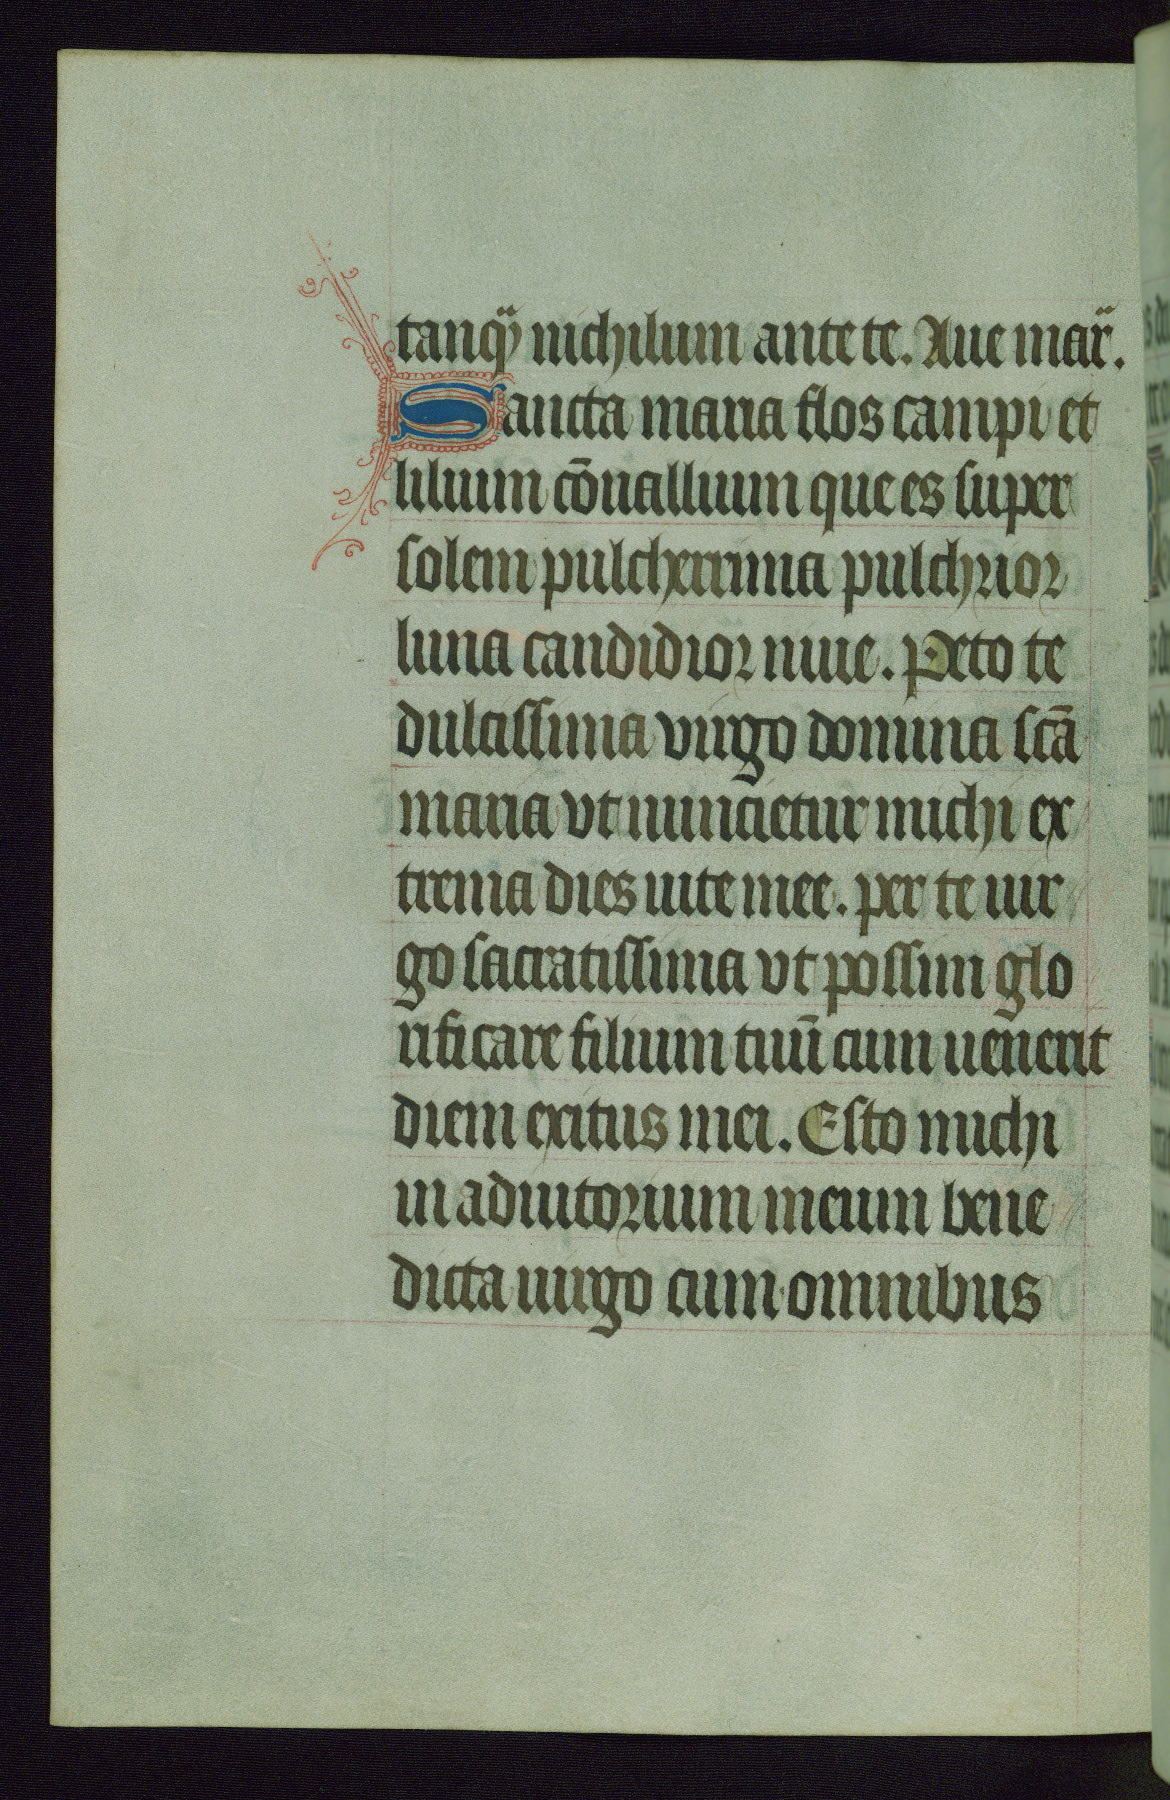 tanqᷓ nichilum ante te. Aue mar̃.
Sancta maria flos campi et
lilium cōuallium que es super
solem pulcherrima pulchrior
luna candidior niue. Peto te
dulcissima virgo domina scā
maria vt nuncietur michi ex
trema dies uite mee. per te uir
go sacratissima vt possim glo
rificare filium tuū cum uenerit
diem exitus mei. Esto michi
in adiutorium meum bene
dicta uirgo cum omnibus